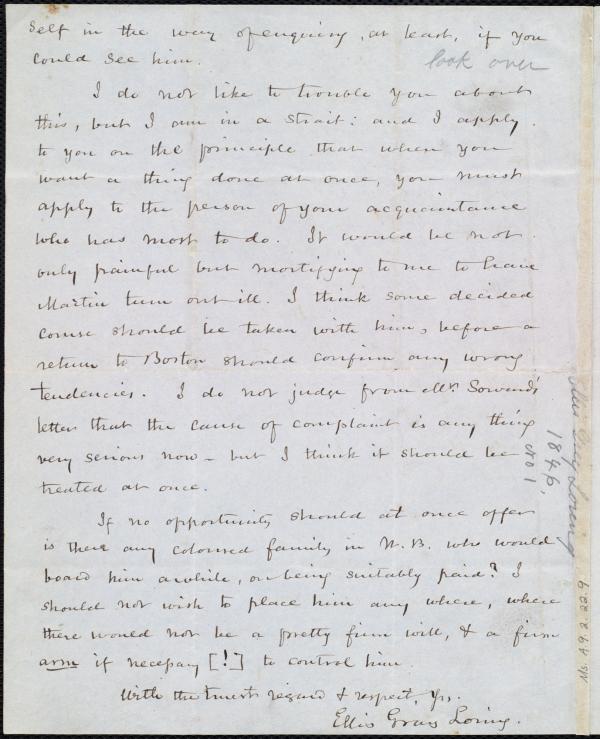 self in the way of enquiring, at least, if you
could see him.
look over
I do not like to trouble you about
this, but I am in a strait: and I apply
to you on the principle that when you
want a thing done at once, you must
apply to the person of your acquaintance
who has most to do. It would be not
only painful but mortifying to me to have
Martin turn out ill. I think some decided
course should be taken with him, before a
return to Boston should confirm any wrong
tendencies. I do not judge from Mr.
letter that the cause of complaint is any thing
very serious now – but I think it should be
treated at once.
If no opportunity should at once offer
is there any coloured family in N.B. who would
board him awhile, on being suitably paid? I
should not wish to place him any where, where
there would not be a pretty firm will, & a firm
arm if necessary [!] to control him.
With the truest regard & respect, Yrs.
Ellis Gray Loring.
Ellis Gray Loring
1846,
No 1
Ms. A.9.2.22.9